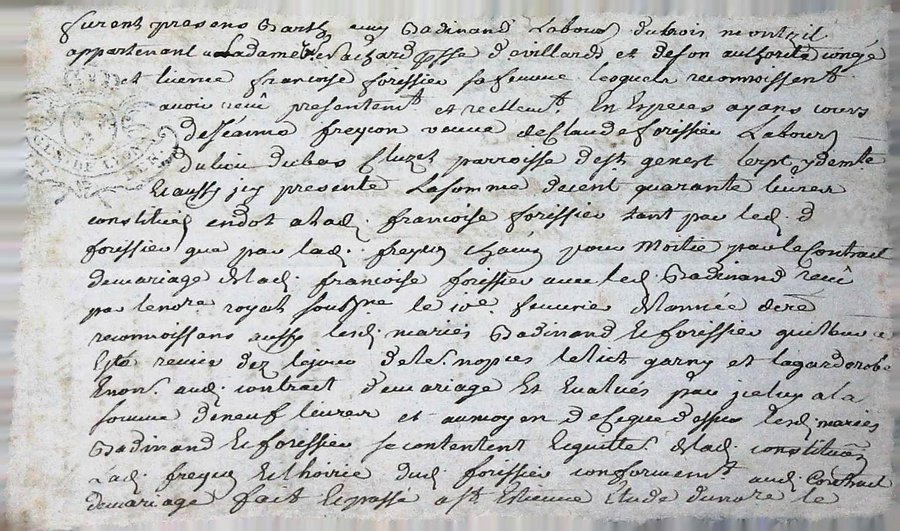 furent presens Barth Badinand Labour du bois montzil
appartenant a Madame Richard d'evillards et de son authorité congé
et licence françoise forissier sa femme lesquels reconnoissent
avoir reçû presentemt et reellemt En Especes ayans cours
de Jeanne freyçon veuve de Claude forissier Labourr
du lieu du bas Cluzel parroisse de st genest lerpt y demte
Et aussy icy presente La somme de cent quarante livres
constituée en dot a lad. françoise forissier tant par led. d
forissier que par lad. freyçon chacun pour Moitié par le Contract
de mariage de lad. françoise forissier avec led. Badinand reçû
par le nore royal soussne le 10e fevrier de l'année dere
reconnoissans aussy lesd. mariés Badinand Et forissier que leur a
Esté remis dez le jour de les nopces le lict garny et la garderobe
Enon aud. contract de mariage Et Evalués par iceluy a la
somme de neuf livres et au moyen de ce que dessus lesd. mariés
Badinand Et forissier se contentent Et quittes de lad. constitution
Lad. freyçon Et l'hoirie dud. forissier conformemt aud. Contract
de mariage fait Et passé a st Etienne Etude du nore le